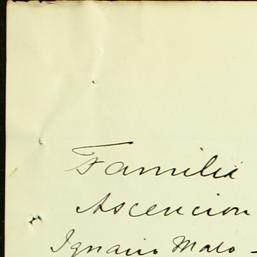 Familia
Ascencion
Ignacio Malo -